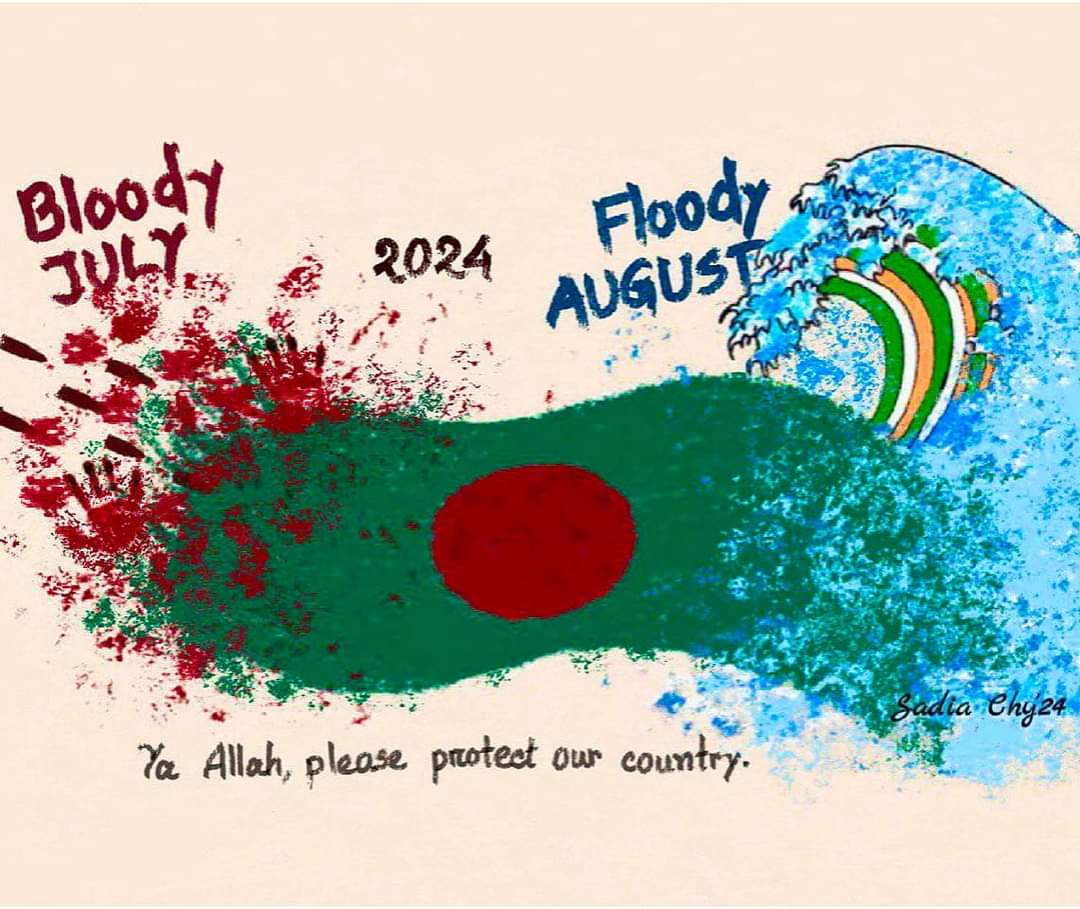 Bloody
JULY
2024
Floody
AUGUST
Sadia Chy'24
Ya Allah, please protect our country.